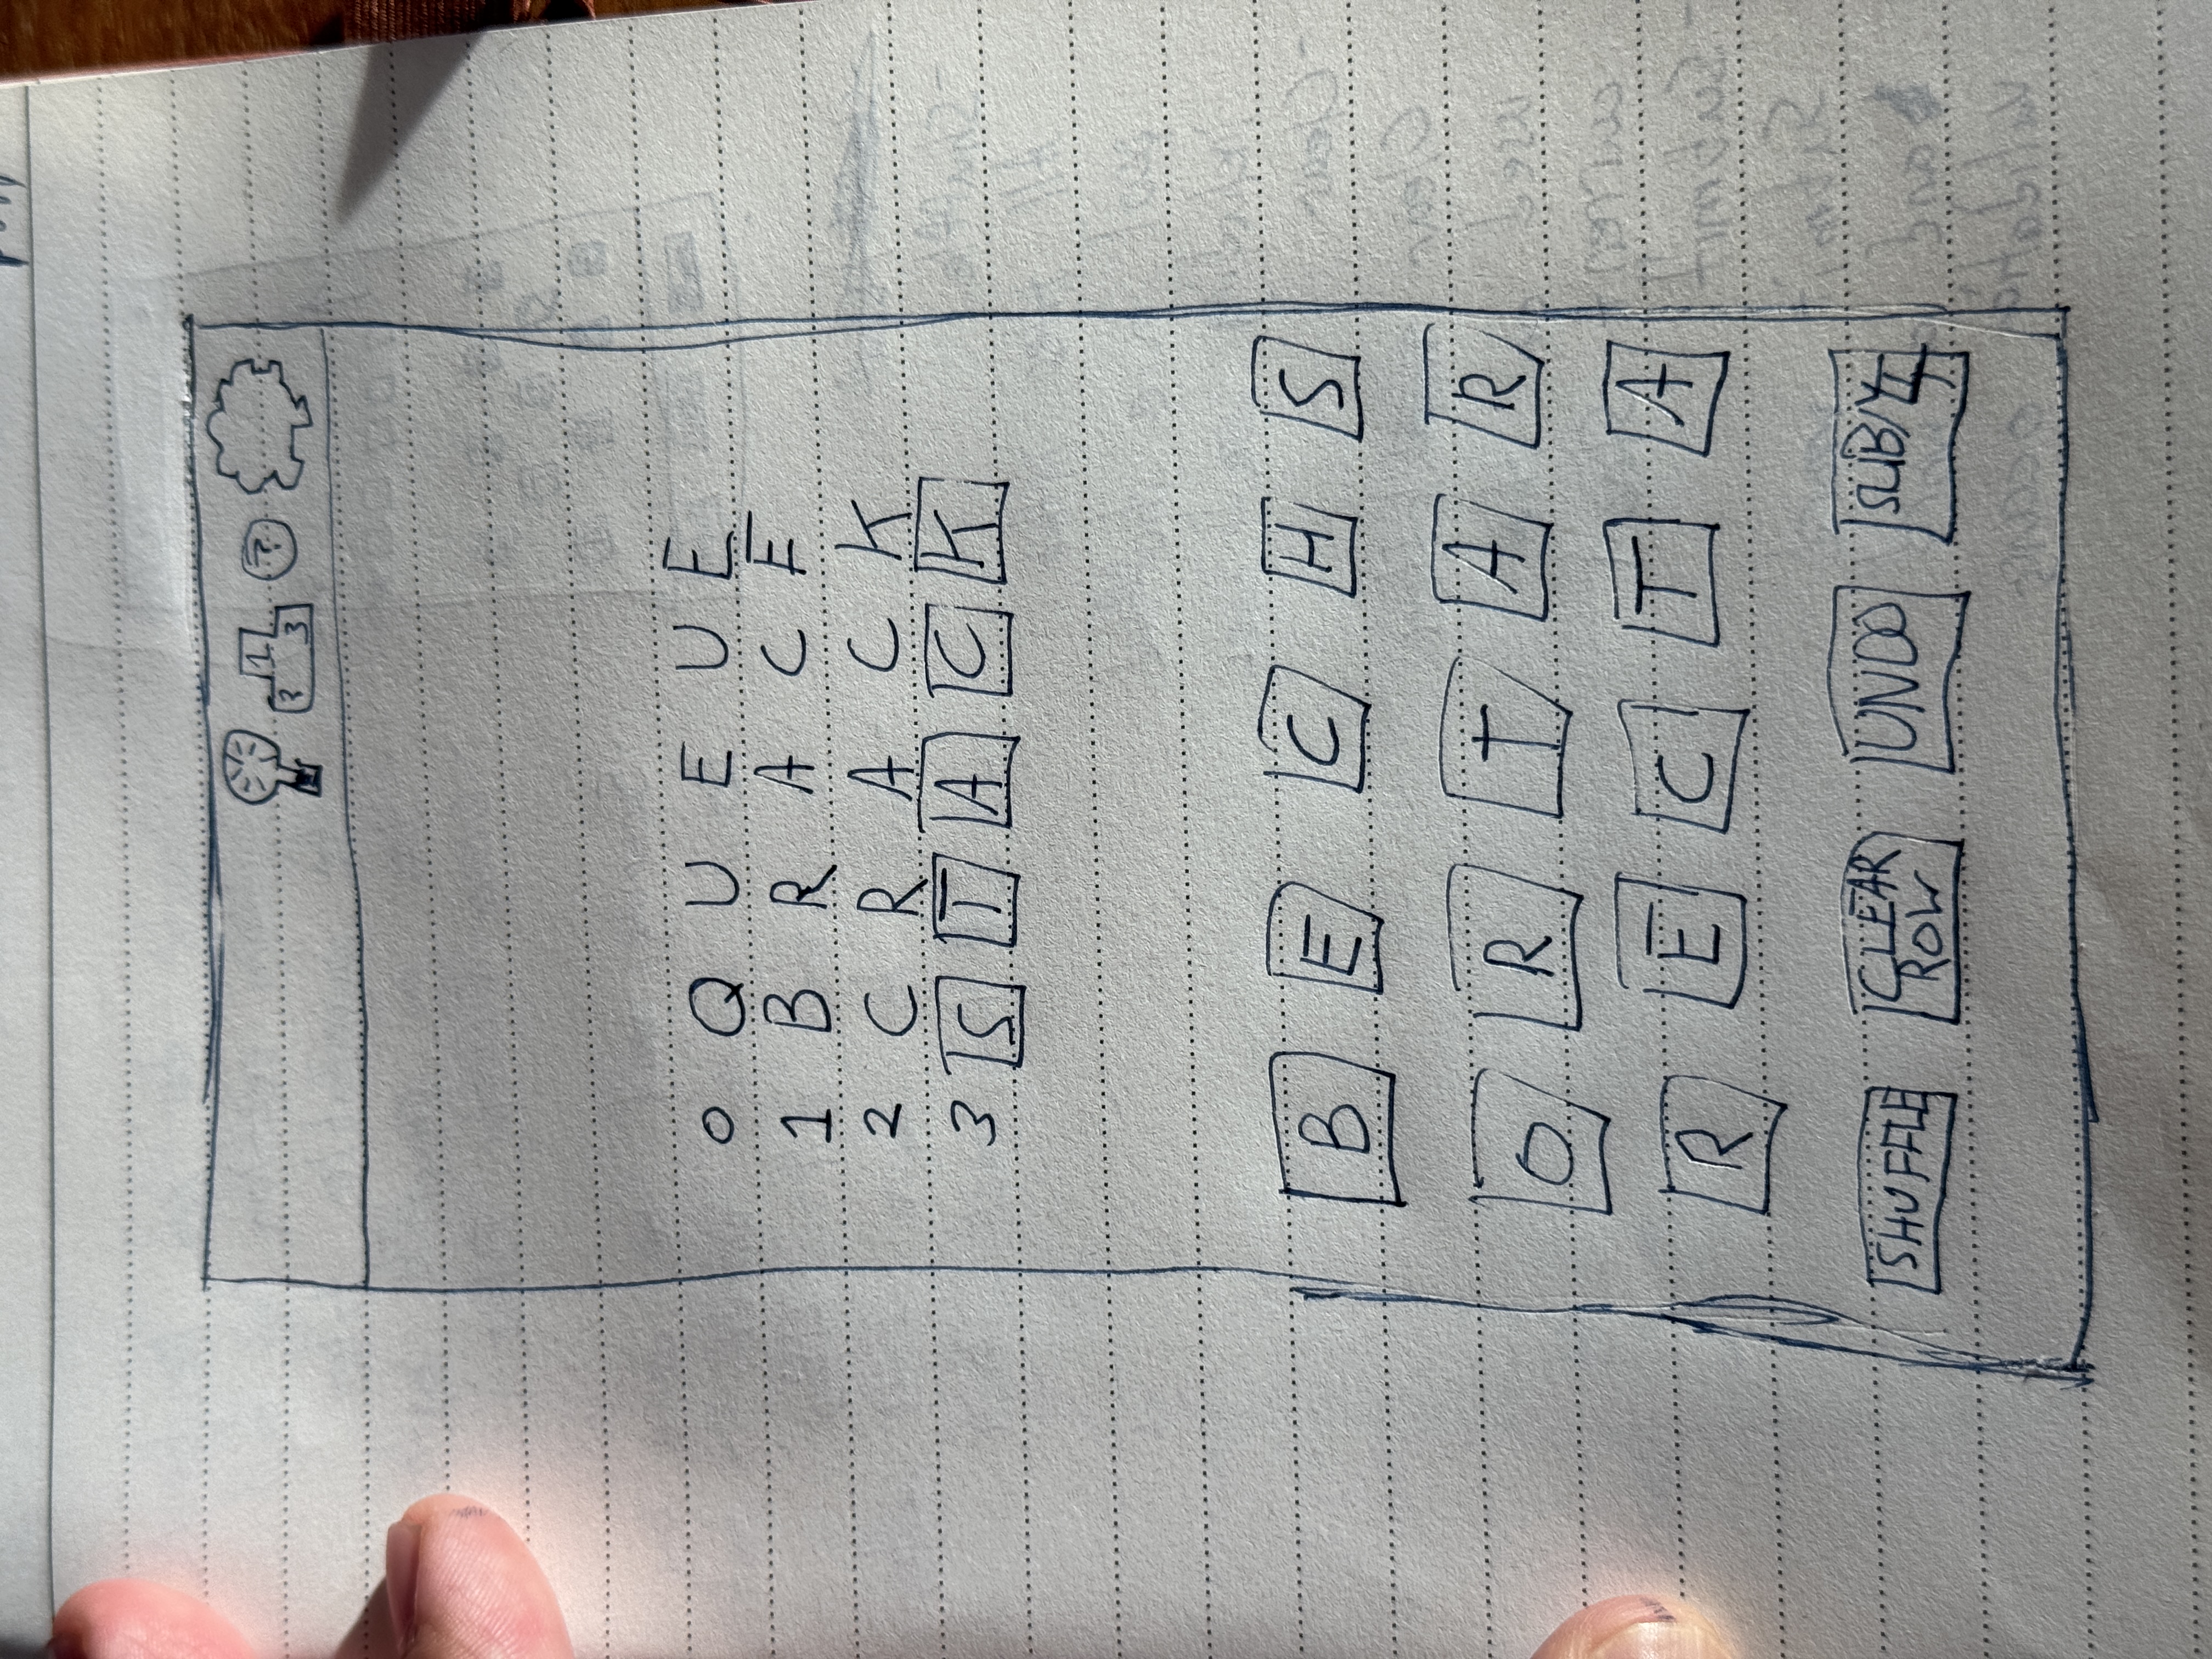 1
2 3 ?
0 Q U E U E
1 B R A C E
2 C R A C K
3 S T A C K
B E C H S
O R T A R
R E C T A
SHUFFLE CLEAR ROW UNDO SUBMIT